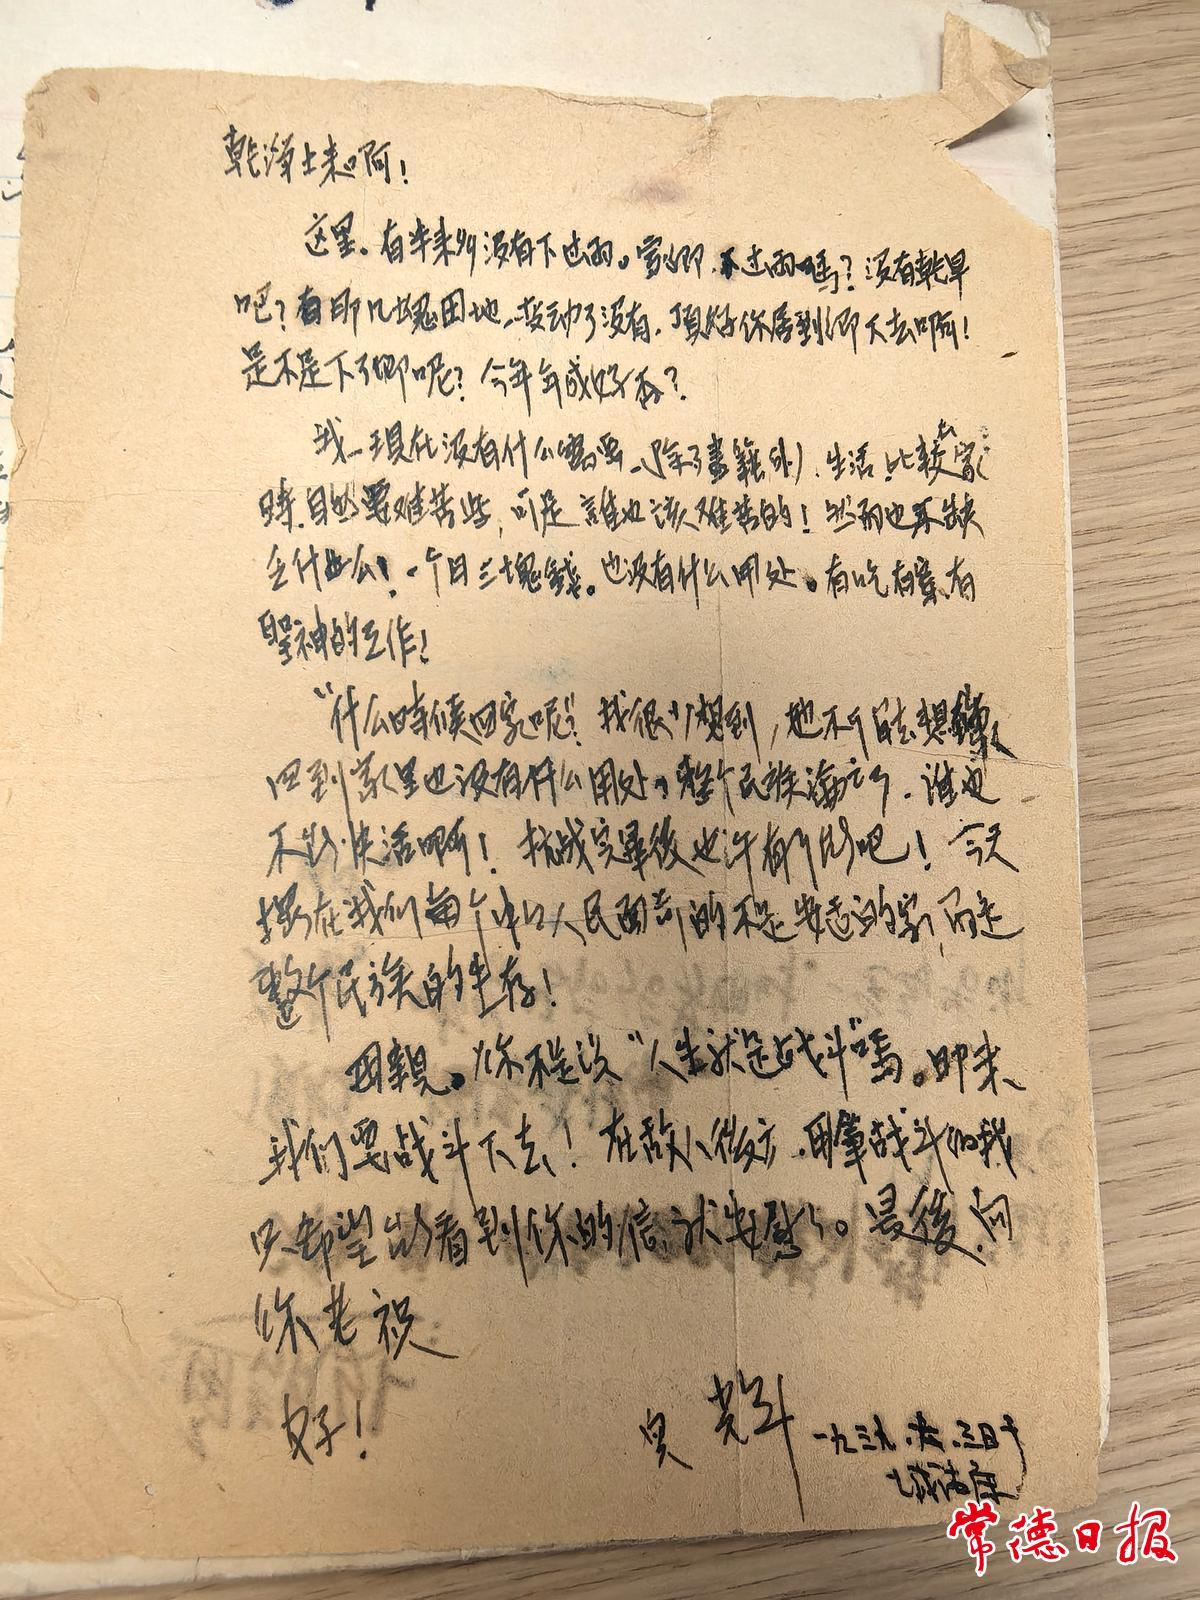 乾净土来啊！
这里，有半来月没有下过雨。家乡，下过雨吗？没有乾旱
吧？有那几块田地，变动了没有，顶好你居到乡下去啊！
是不是下了乡呢？今年年成好否？
我，现在没有什么需要，除了书籍外，生活比较在家
时，自然要难苦些，可是谁也该难苦的！然而也不缺
乏什么！一个月三块钱。也没有什么用处。有吃有穿，有
圣神的工作！
“什么时候回家呢？”我很少想到，也不
回到家里也没有什么用处，整个民族沦亡了，谁也
不能快活啊！抗战完毕後也许有可能吧！今天
摆在我们每个中国人民面前的不是安适的家，而是
整个民族的生存！
母亲。你不是说“人生就是战斗”吗。那末、
我们要战斗下去！在敌人後方，用笔战斗的我
只希望能看到你的信，就安慰了。最後，向
你老祝
好！
儿
一九三九.六.三日于
常德日报